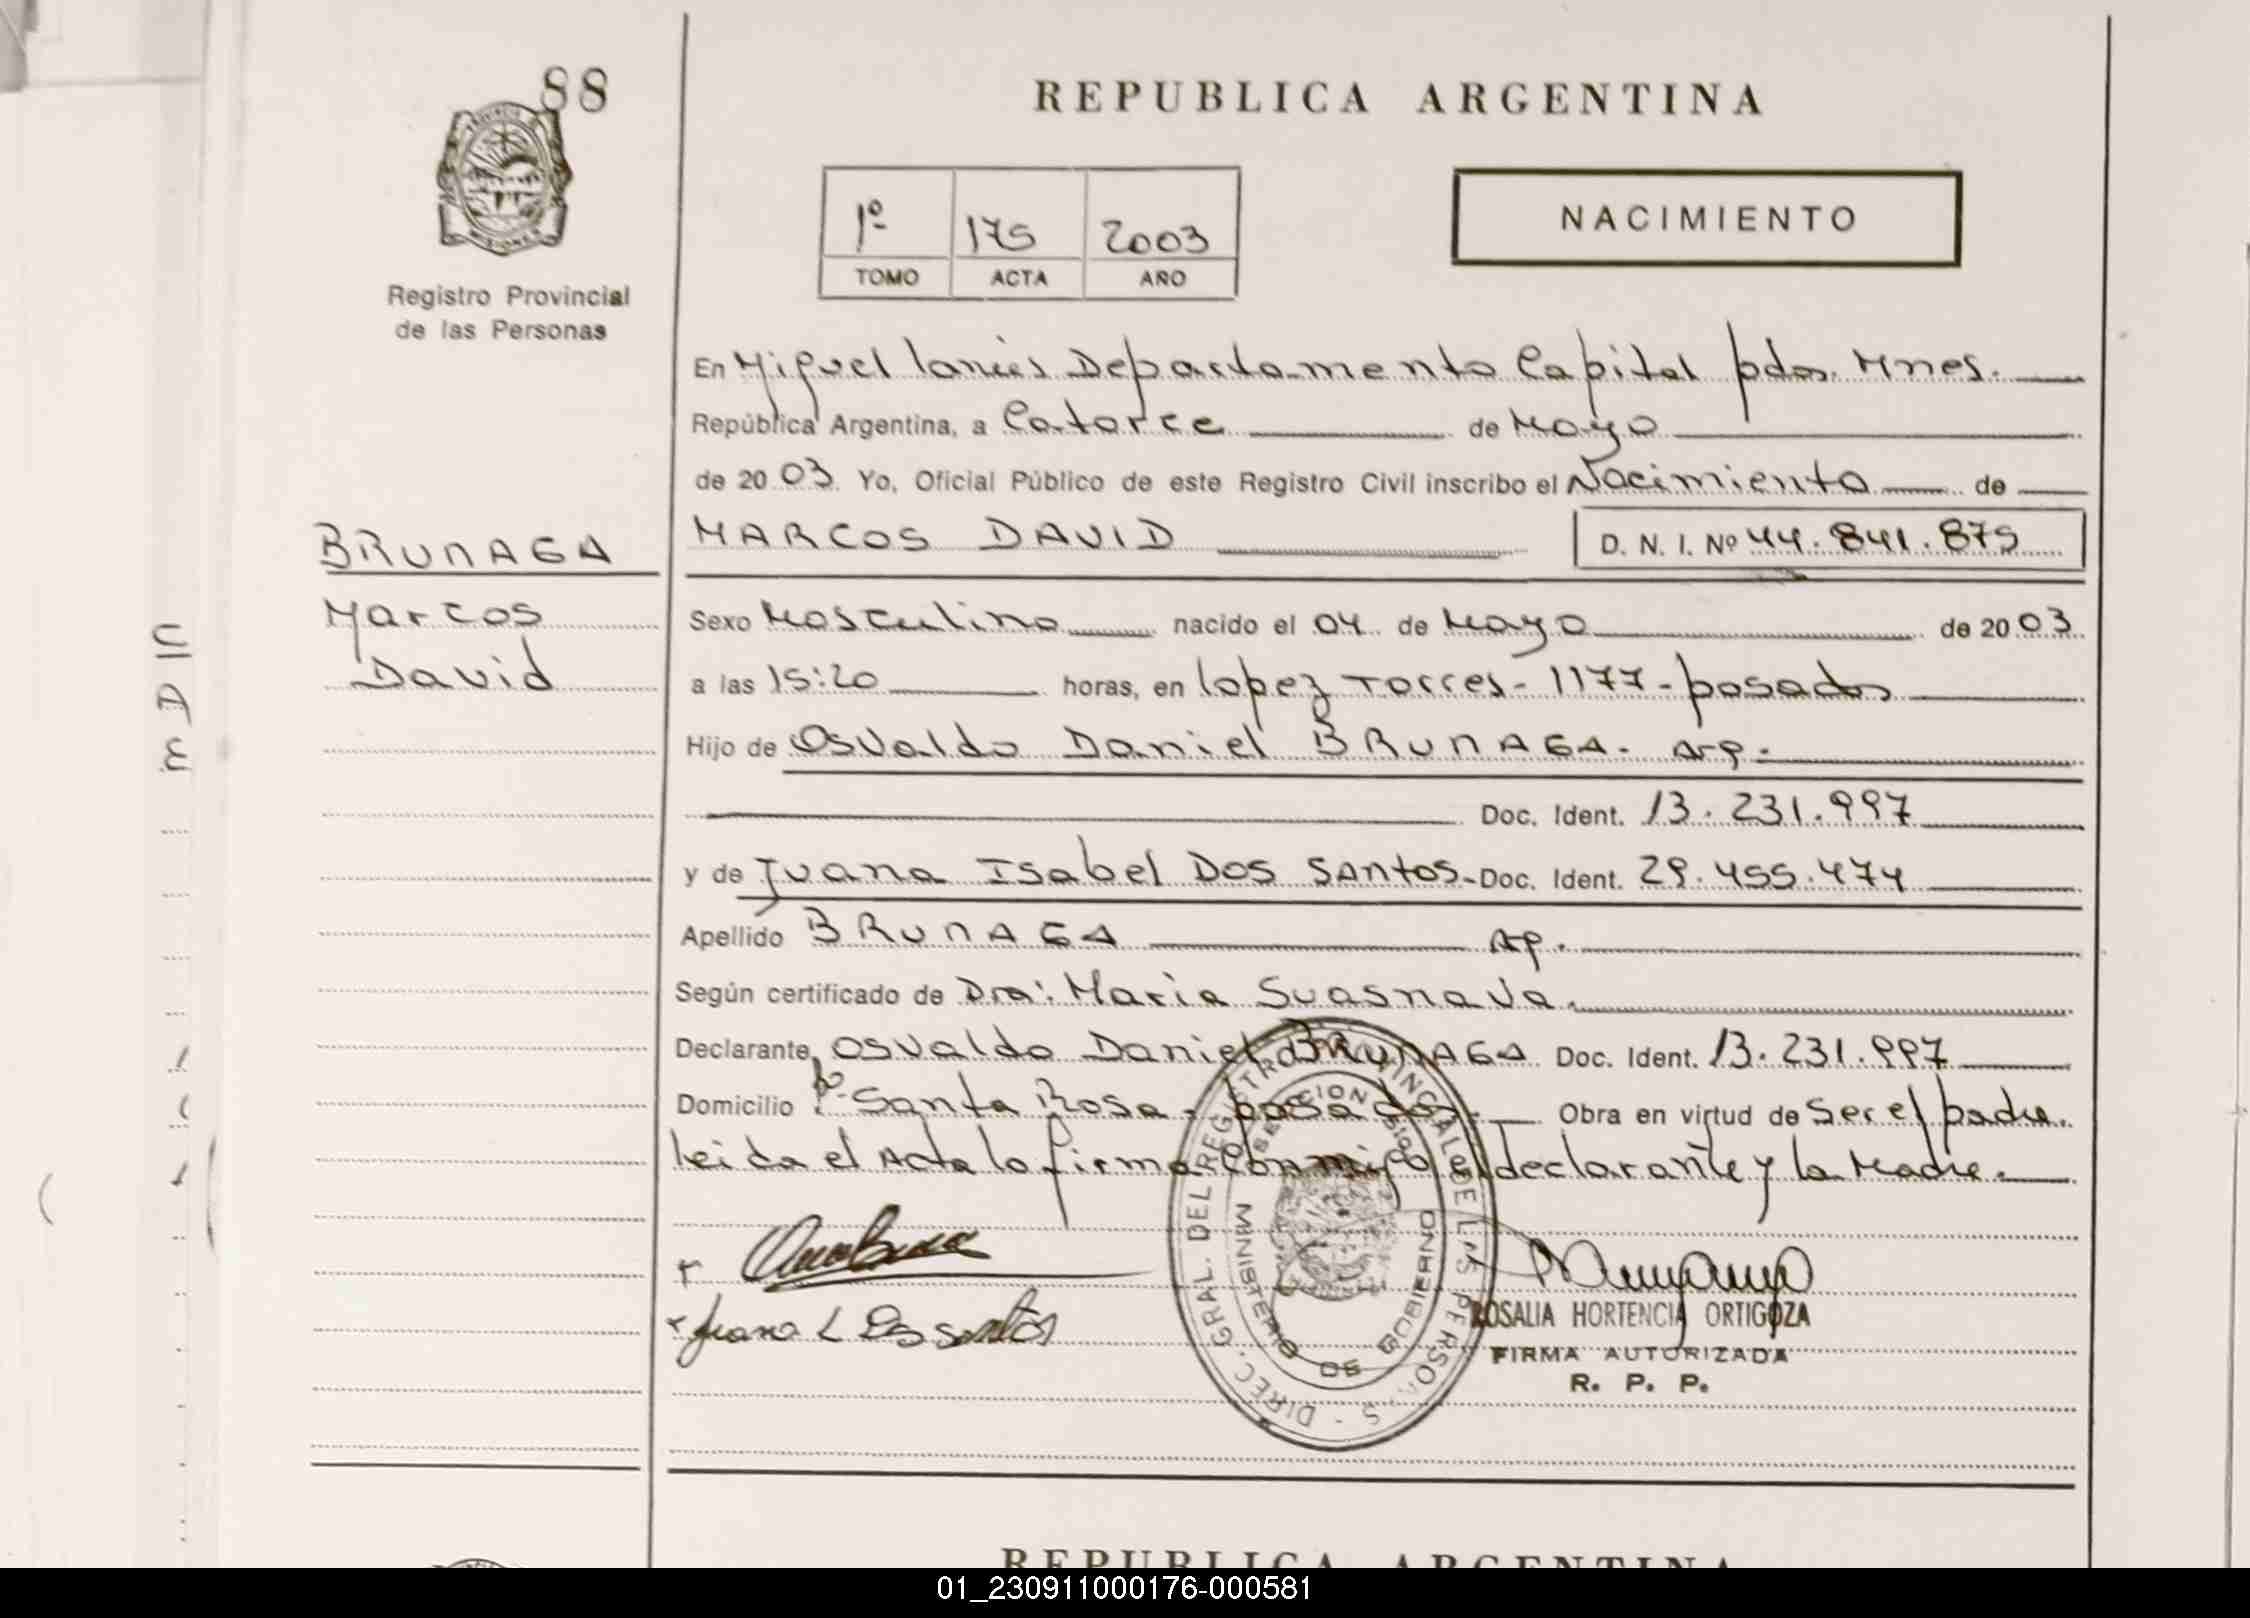 88
REPUBLICA ARGENTINA
PROVINCIA DE
MISIONES
Registro Provincial
de las Personas
1º 175 2003
TOMO ACTA AÑO
NACIMIENTO
En Miguel Lanús Departamento Capital pdas. Mnes.
República Argentina, a Catorce de Mayo
de 2003 Yo, Oficial Público de este Registro Civil inscribo el Nacimiento de
BRUNAGA
Marcos
David
MARCOS DAVID D. N. I. Nº 44.841.875
Sexo Masculino nacido el 04 de Mayo de 2003
a las 15:20 horas, en Lopez Torres - 1177 - posadas
Hijo de Osvaldo Daniel BRUNAGA - Arg.
Doc. Ident. 13.231.997
y de Juana Isabel DOS SANTOS - Doc. Ident. 29.455.474
Apellido BRUNAGA Ap.
Según certificado de Dra: Maria Suasnava.
Declarante, Osvaldo Daniel BRUNAGA Doc. Ident. 13.231.997
Domicilio Bº Santa Rosa - posadas. Obra en virtud de Ser el padre.
Leida el Acta la firma conmigo el declarante y la Madre.
Juana I Dos santos
DIREC. GRAL. DEL REGISTRO PROVINCIAL DE LAS PERSONAS
MINISTERIO DE GOBIERNO
ROSALIA HORTENCIA ORTIGOZA
FIRMA AUTORIZADA
R. P. P.
REPUBLICA ARGENTINA
01_230911000176-000581